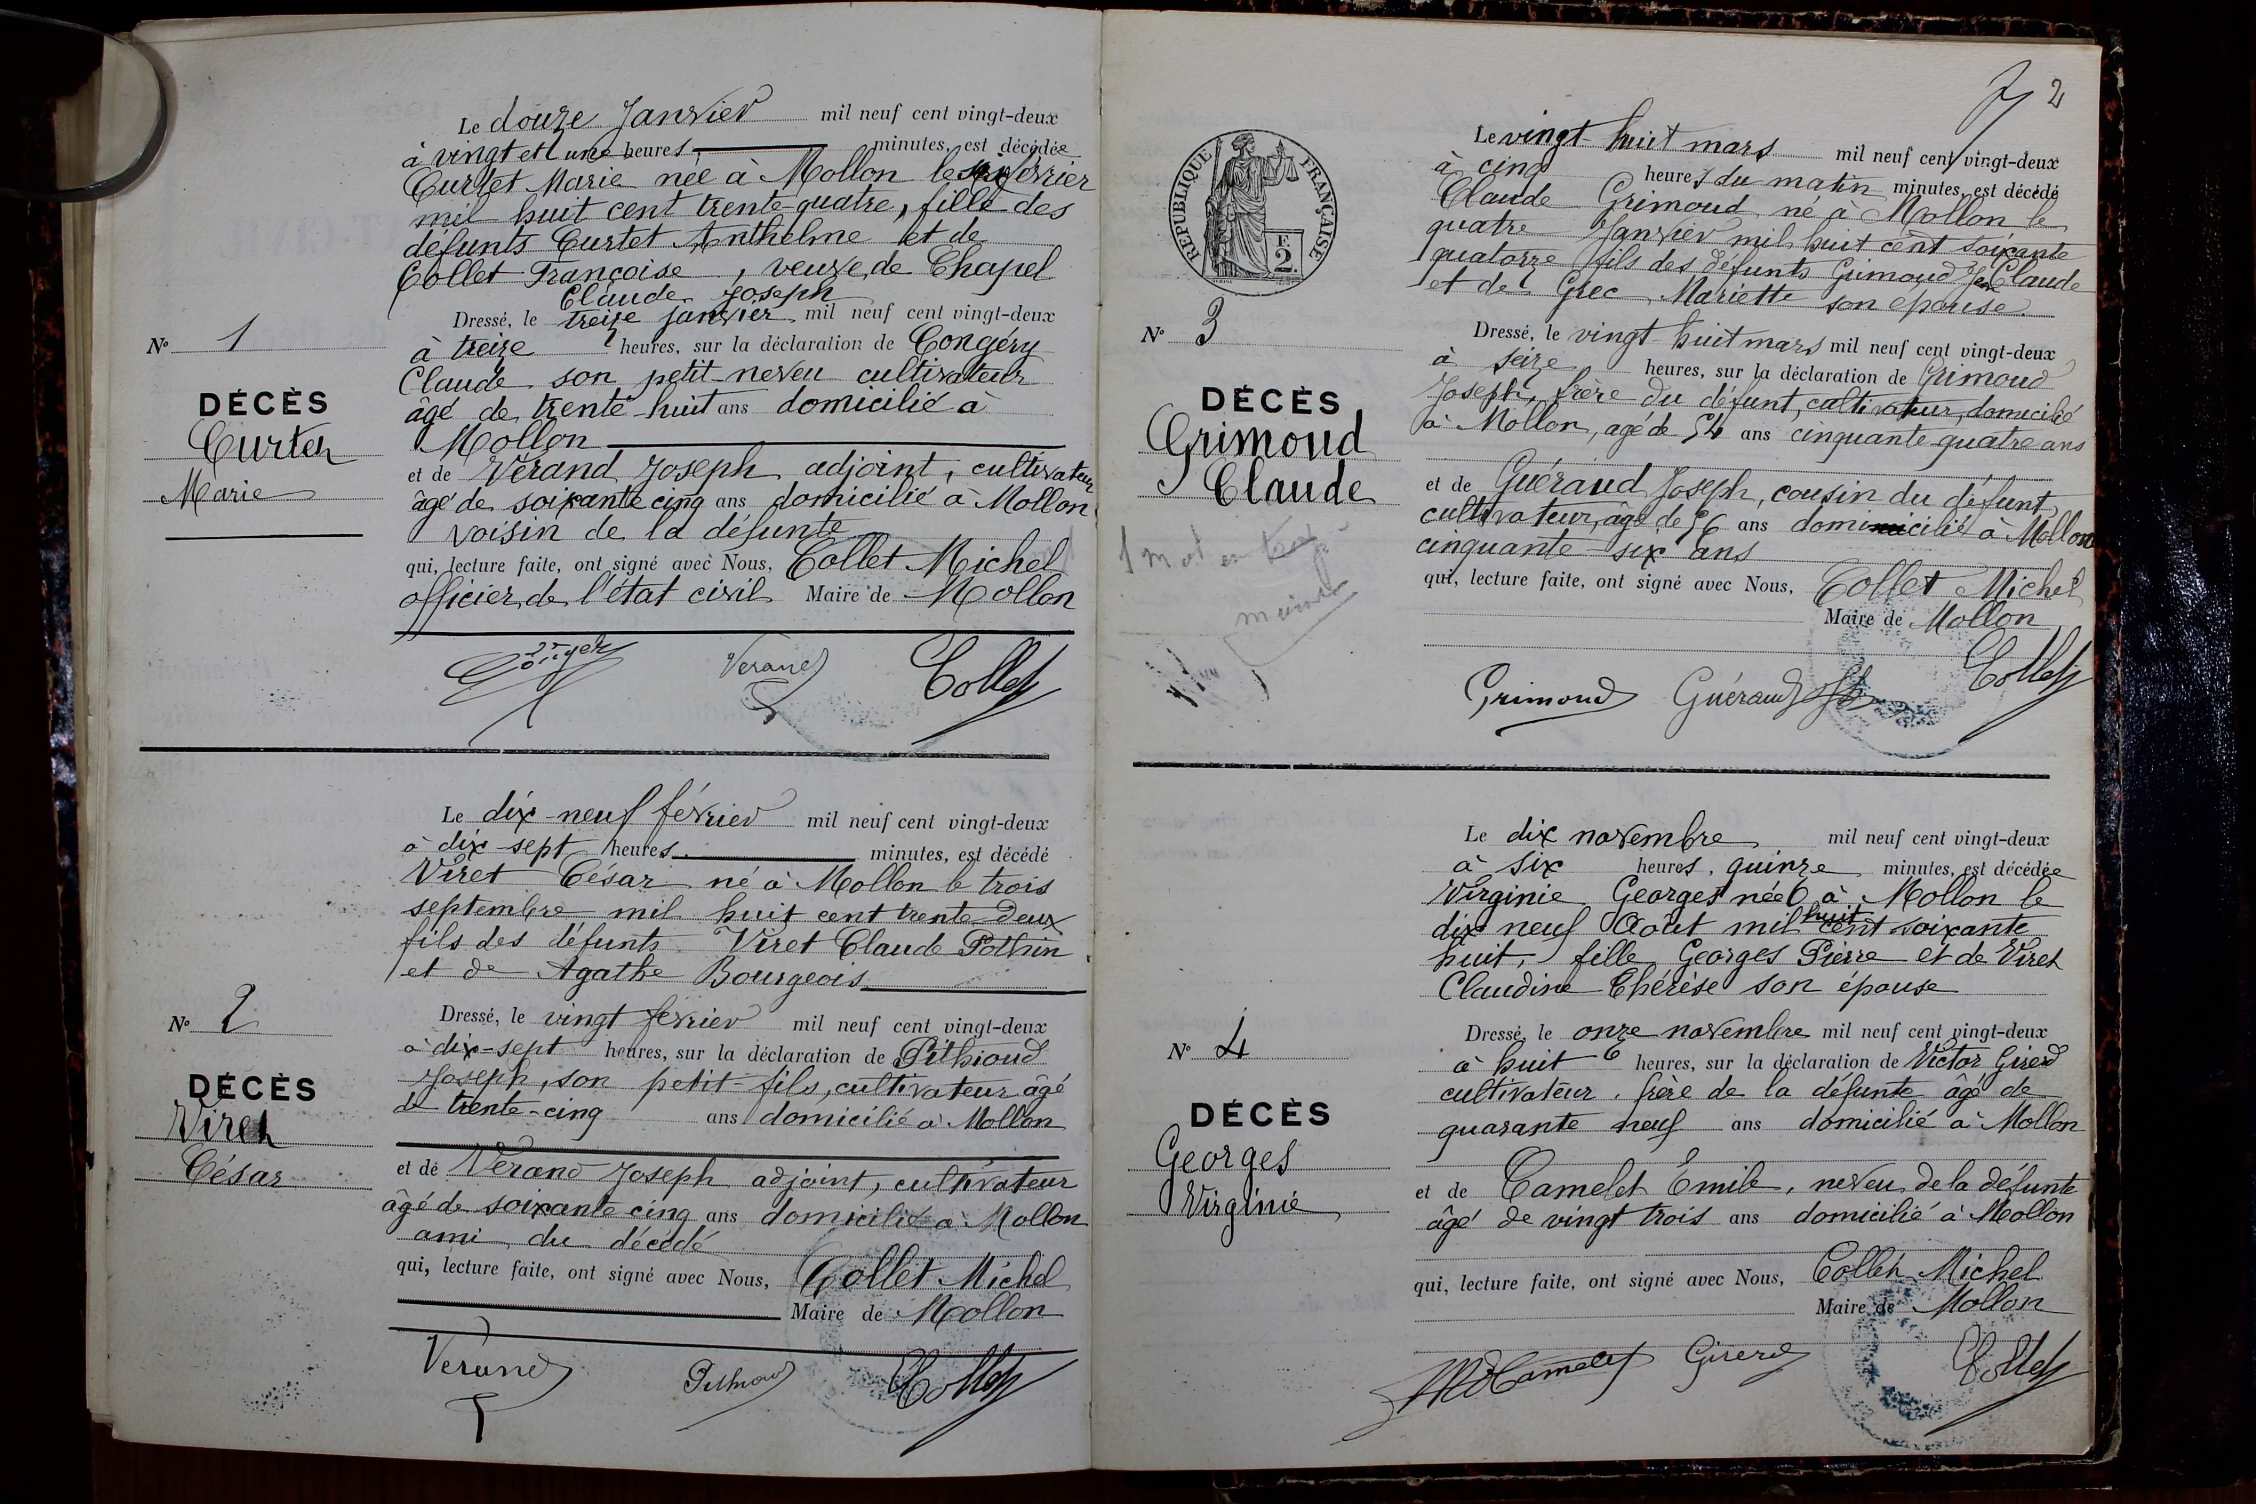 Le douze Janvier mil neuf cent vingt-deux
à vingt et une heures, minutes, est décédée
Curtet Marie née à Mollon le six février
mil huit cent trente-quatre, fille des
défunts Curtet Anthelme et de
Collet Françoise, veuve de Chapel
Claude Joseph
Dressé, le treize janvier mil neuf cent vingt-deux
à treize heures, sur la déclaration de Congéry
Claude son petit-neveu cultivateur
âgé de trente-huit ans domicilié à
Mollon
et de Vérand Joseph adjoint, cultivateur
âgé de soixante cinq ans domicilié à Mollon
voisin de la défunte
qui, lecture faite, ont signé avec Nous, Collet Michel
officier de l'état civil Maire de Mollon
Verand Collet
N° 1
DÉCÈS
Curtet
Marie
Le dix-neuf février mil neuf cent vingt-deux
à dix-sept heures, minutes, est décédé
Viret César né à Mollon le trois
septembre mil huit cent trente-deux
fils des défunts Viret Claude Pothin
et de Agathe Bourgeois
Dressé, le vingt février mil neuf cent vingt-deux
à dix-sept heures, sur la déclaration de Pithioud
Joseph, son petit-fils, cultivateur âgé
de trente-cinq ans domicilié à Mollon
et de Vérand Joseph adjoint, cultivateur
âgé de soixante cinq ans domicilié à Mollon
ami du décédé
qui, lecture faite, ont signé avec Nous, Collet Michel
Maire de Mollon
Verand Pithioud Collet
N° 2
DÉCÈS
Viret
César
2
RÉPUBLIQUE FRANÇAISE
F.
2.
Le vingt-huit mars mil neuf cent vingt-deux
à cinq heures du matin minutes, est décédé
Claude Grimoud né à Mollon le
quatre Janvier mil huit cent soixante
quatorze fils des défunts Grimoud Jn Claude
et de Grec Mariette son épouse
Dressé, le vingt-huit mars mil neuf cent vingt-deux
à seize heures, sur la déclaration de Grimoud
Joseph, frère du défunt, cultivateur, domicilié
à Mollon, âgé de 54 ans cinquante-quatre ans
et de Guéraud Joseph, cousin du défunt,
cultivateur, âgé de 56 ans domicilié à Mollon
cinquante-six ans
qui, lecture faite, ont signé avec Nous, Collet Michel
Maire de Mollon
Grimoud Guéraud Collet
N° 3
DÉCÈS
Grimoud
Claude
1 mot en
Le dix novembre mil neuf cent vingt-deux
à six heures, quinze minutes, est décédée
Virginie Georges née à Mollon le
dix neuf Août mil huit cent soixante
huit, fille Georges Pierre et de Viret
Claudine Thérèse son épouse
Dressé, le onze novembre mil neuf cent vingt-deux
à huit heures, sur la déclaration de Victor Girerd
cultivateur, frère de la défunte âgé de
quarante neuf ans domicilié à Mollon
et de Camelet Émile, neveu de la défunte
âgé de vingt trois ans domicilié à Mollon
qui, lecture faite, ont signé avec Nous, Collet Michel
Maire de Mollon
Camelet Girerd Collet
N° 4
DÉCÈS
Georges
Virginie